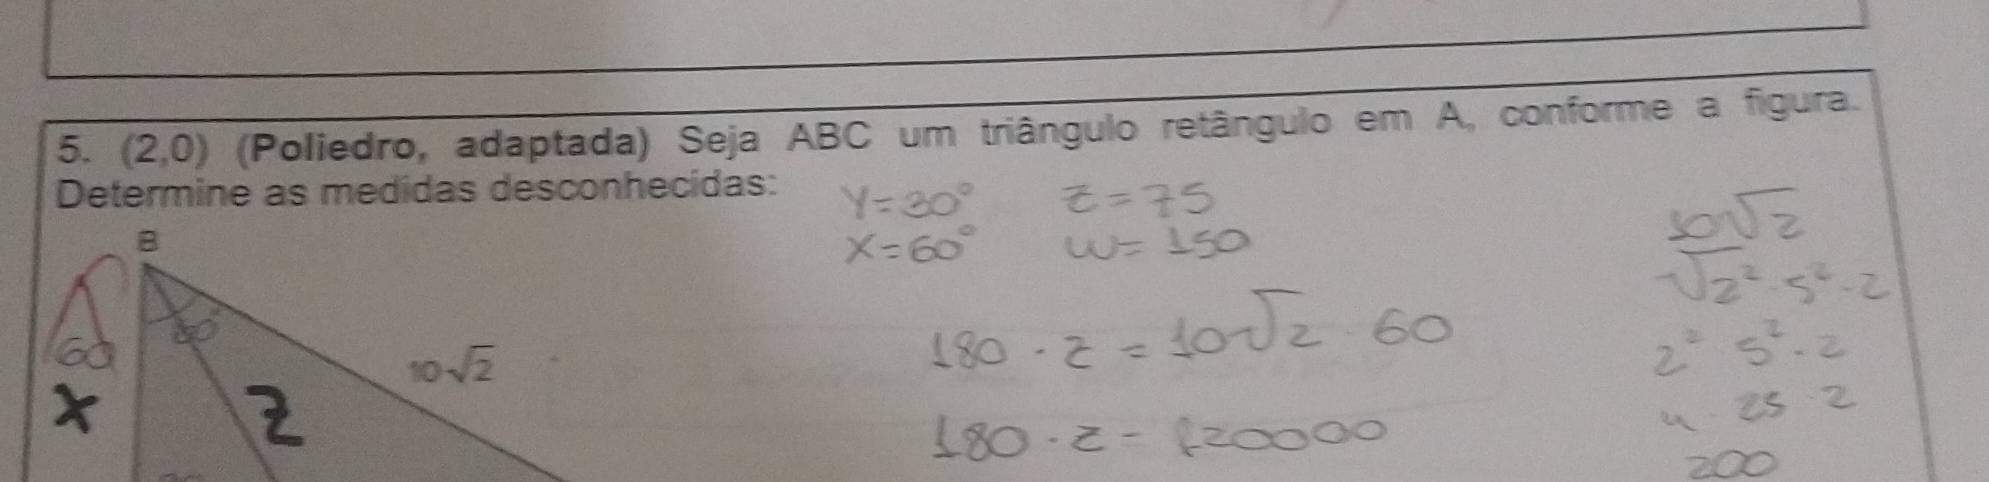 5. (2,0) (Poliedro, adaptada) Seja ABC um triângulo retângulo em A, conforme a figura.
Determine as medidas desconhecidas:
Y=30° Z=75
X=60° W=150
B
60
10√2
X
Z
180 · Z = 10√2 · 60
180 · Z = 120000
10√2
√2² · 5² · 2
2² 5² · 2
4 · 25 · 2
200